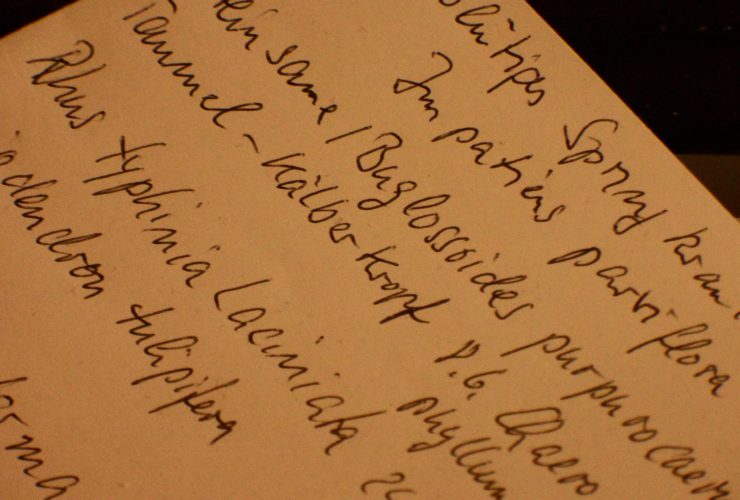 lütiges Springkrau
Impatiens parviflora
einsame / Buglossoides purpurocaer
Taumel-Kälberkropf p.G. Chaero
phyllum
Rhus typhinia Laciniata
odendron tulipifera